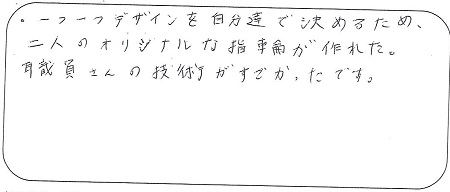 ・一つ一つデザインを自分達で決めるため、
二人のオリジナルな指輪が作れた。
職員さんの技術がすごかったです。